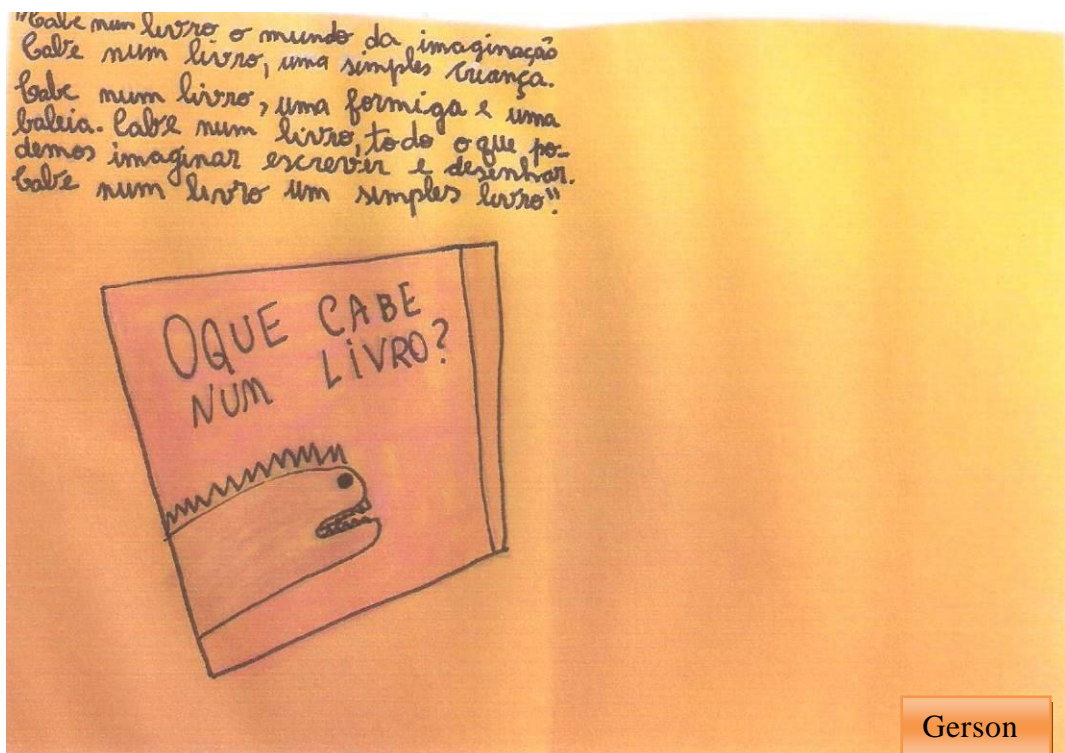 "Cabe num livro o mundo da imaginação
Cabe num livro, uma simples criança.
Cabe num livro, uma formiga e uma
baleia. Cabe num livro, todo o que po-
demos imaginar escrever e desenhar.
Cabe num livro um simples livro".
OQUE CABE
NUM LIVRO?
Gerson